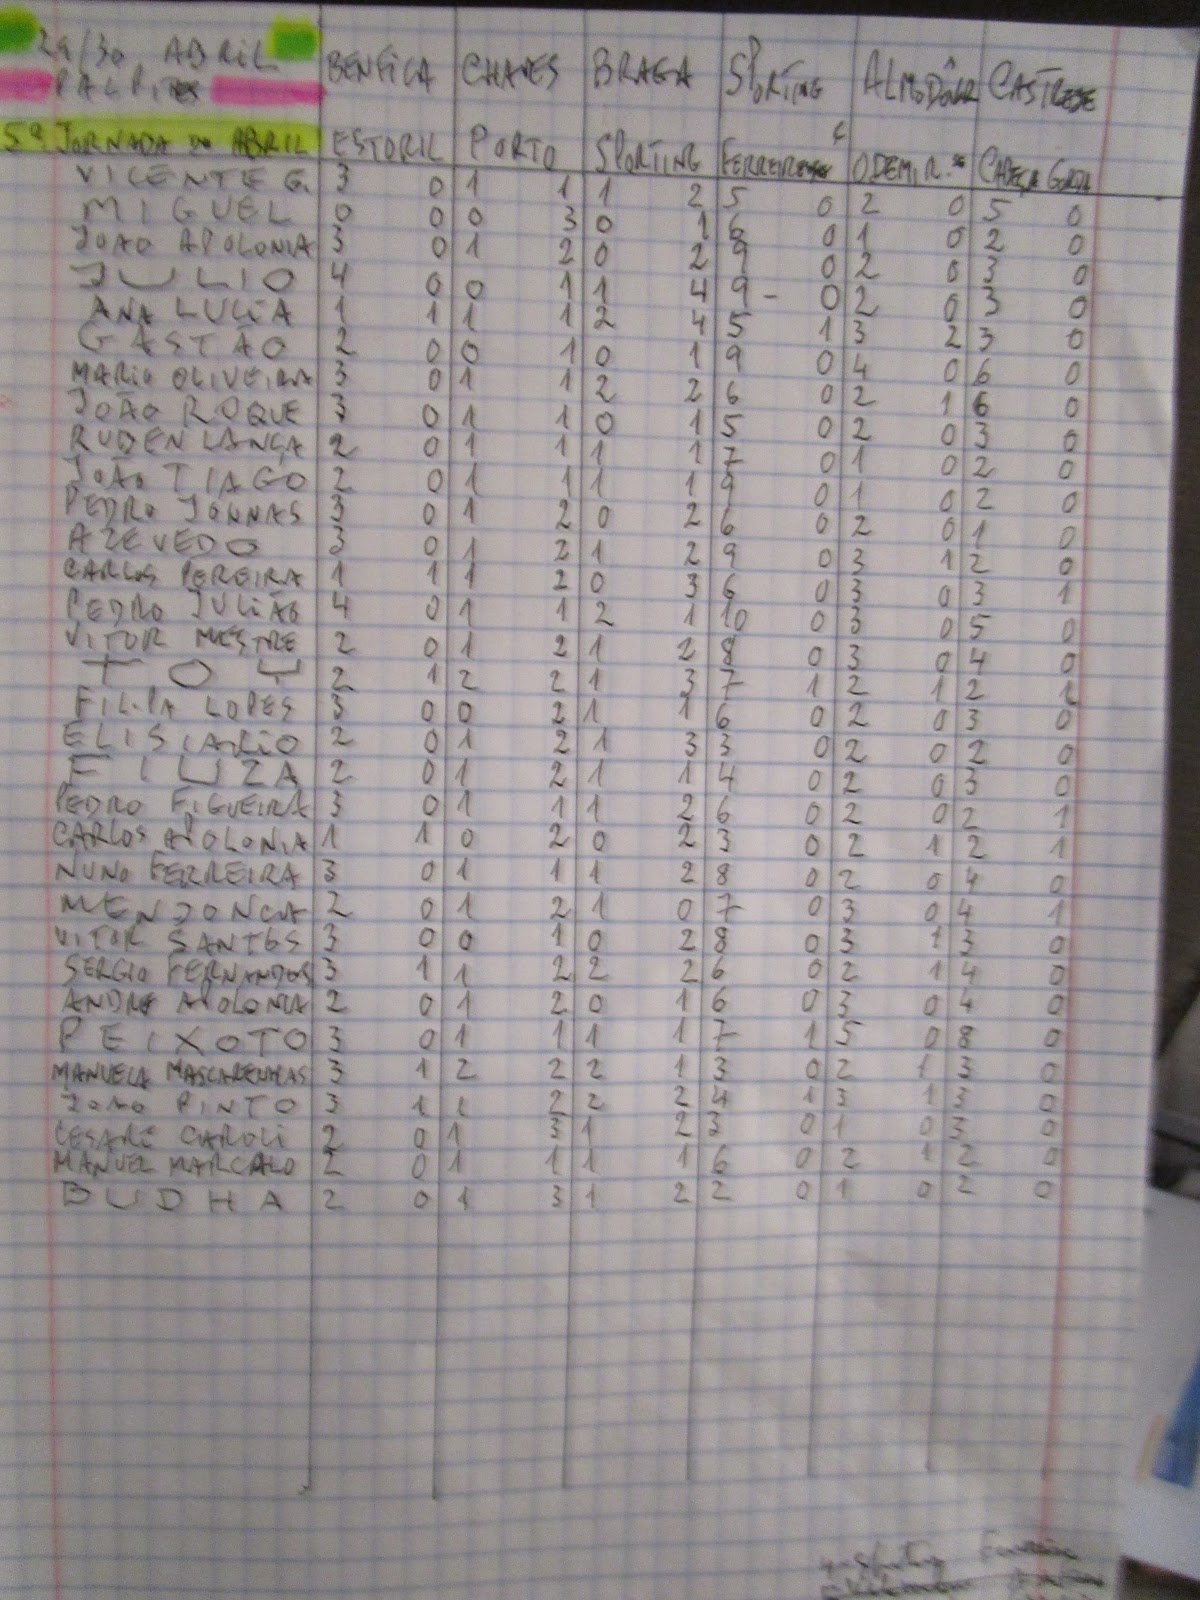 29/30 ABRIL BENFICA CHAVES BRAGA SPORTING ALMODÔVAR CASTRENSE
PALPITES
5ª JORNADA DE ABRIL ESTORIL PORTO SPORTING FERREIRENSE ODEMIR.SE CABEÇA GORDA
VICENTE G. 3 0 1 1 1 2 5 0 2 0 5 0
MIGUEL 0 0 0 3 0 1 6 0 1 0 2 0
JOÃO APOLONIA 3 0 1 2 0 2 9 0 2 0 3 0
JULIO 4 0 0 1 1 4 9 - 0 2 0 3 0
ANA LUCIA 1 1 1 1 2 4 5 1 3 2 3 0
GASTÃO 2 0 0 1 0 1 9 0 4 0 6 0
MARIO OLIVEIRA 3 0 1 1 2 2 6 0 2 1 6 0
JOÃO ROQUE 3 0 1 1 0 1 5 0 2 0 3 0
RUBEN LANÇA 2 0 1 1 1 1 7 0 1 0 2 0
JOÃO TIAGO 2 0 1 1 1 1 9 0 1 0 2 0
PEDRO JONNAS 3 0 1 2 0 2 6 0 2 0 1 0
AZEVEDO 3 0 1 2 1 2 9 0 3 1 2 0
CARLOS PEREIRA 1 1 1 2 0 3 6 0 3 0 3 1
PEDRO JULIÃO 4 0 1 1 2 1 10 0 3 0 5 0
VITOR MESTRE 2 0 1 2 1 2 8 0 3 0 4 0
TOY 2 1 2 2 1 3 7 1 2 1 2 1
FILIPA LOPES 3 0 0 2 1 1 6 0 2 0 3 0
ELISIARIO 2 0 1 2 1 3 3 0 2 0 2 0
FIUZA 2 0 1 2 1 1 4 0 2 0 3 0
PEDRO FIGUEIRA 3 0 1 1 1 2 6 0 2 0 2 1
CARLOS APOLONIA 1 1 0 2 0 2 3 0 2 1 2 1
NUNO FERREIRA 3 0 1 1 1 2 8 0 2 0 4 0
MENDONCA 2 0 1 2 1 0 7 0 3 0 4 1
VITOR SANTOS 3 0 0 1 0 2 8 0 3 1 3 0
SERGIO FERNANDES 3 1 1 2 2 2 6 0 2 1 4 0
ANDRE APOLONIA 2 0 1 2 0 1 6 0 3 0 4 0
PEIXOTO 3 0 1 1 1 1 7 1 5 0 8 0
MANUELA MASCARENHAS 3 1 2 2 2 1 3 0 2 1 3 0
JOÃO PINTO 3 1 2 2 2 4 1 3 1 3 0
CESARE CAROLI 2 0 1 3 1 2 3 0 1 0 3 0
MANUEL MARCALO 2 0 1 1 1 1 6 0 2 1 2 0
BUDHA 2 0 1 3 1 2 2 0 1 0 2 0